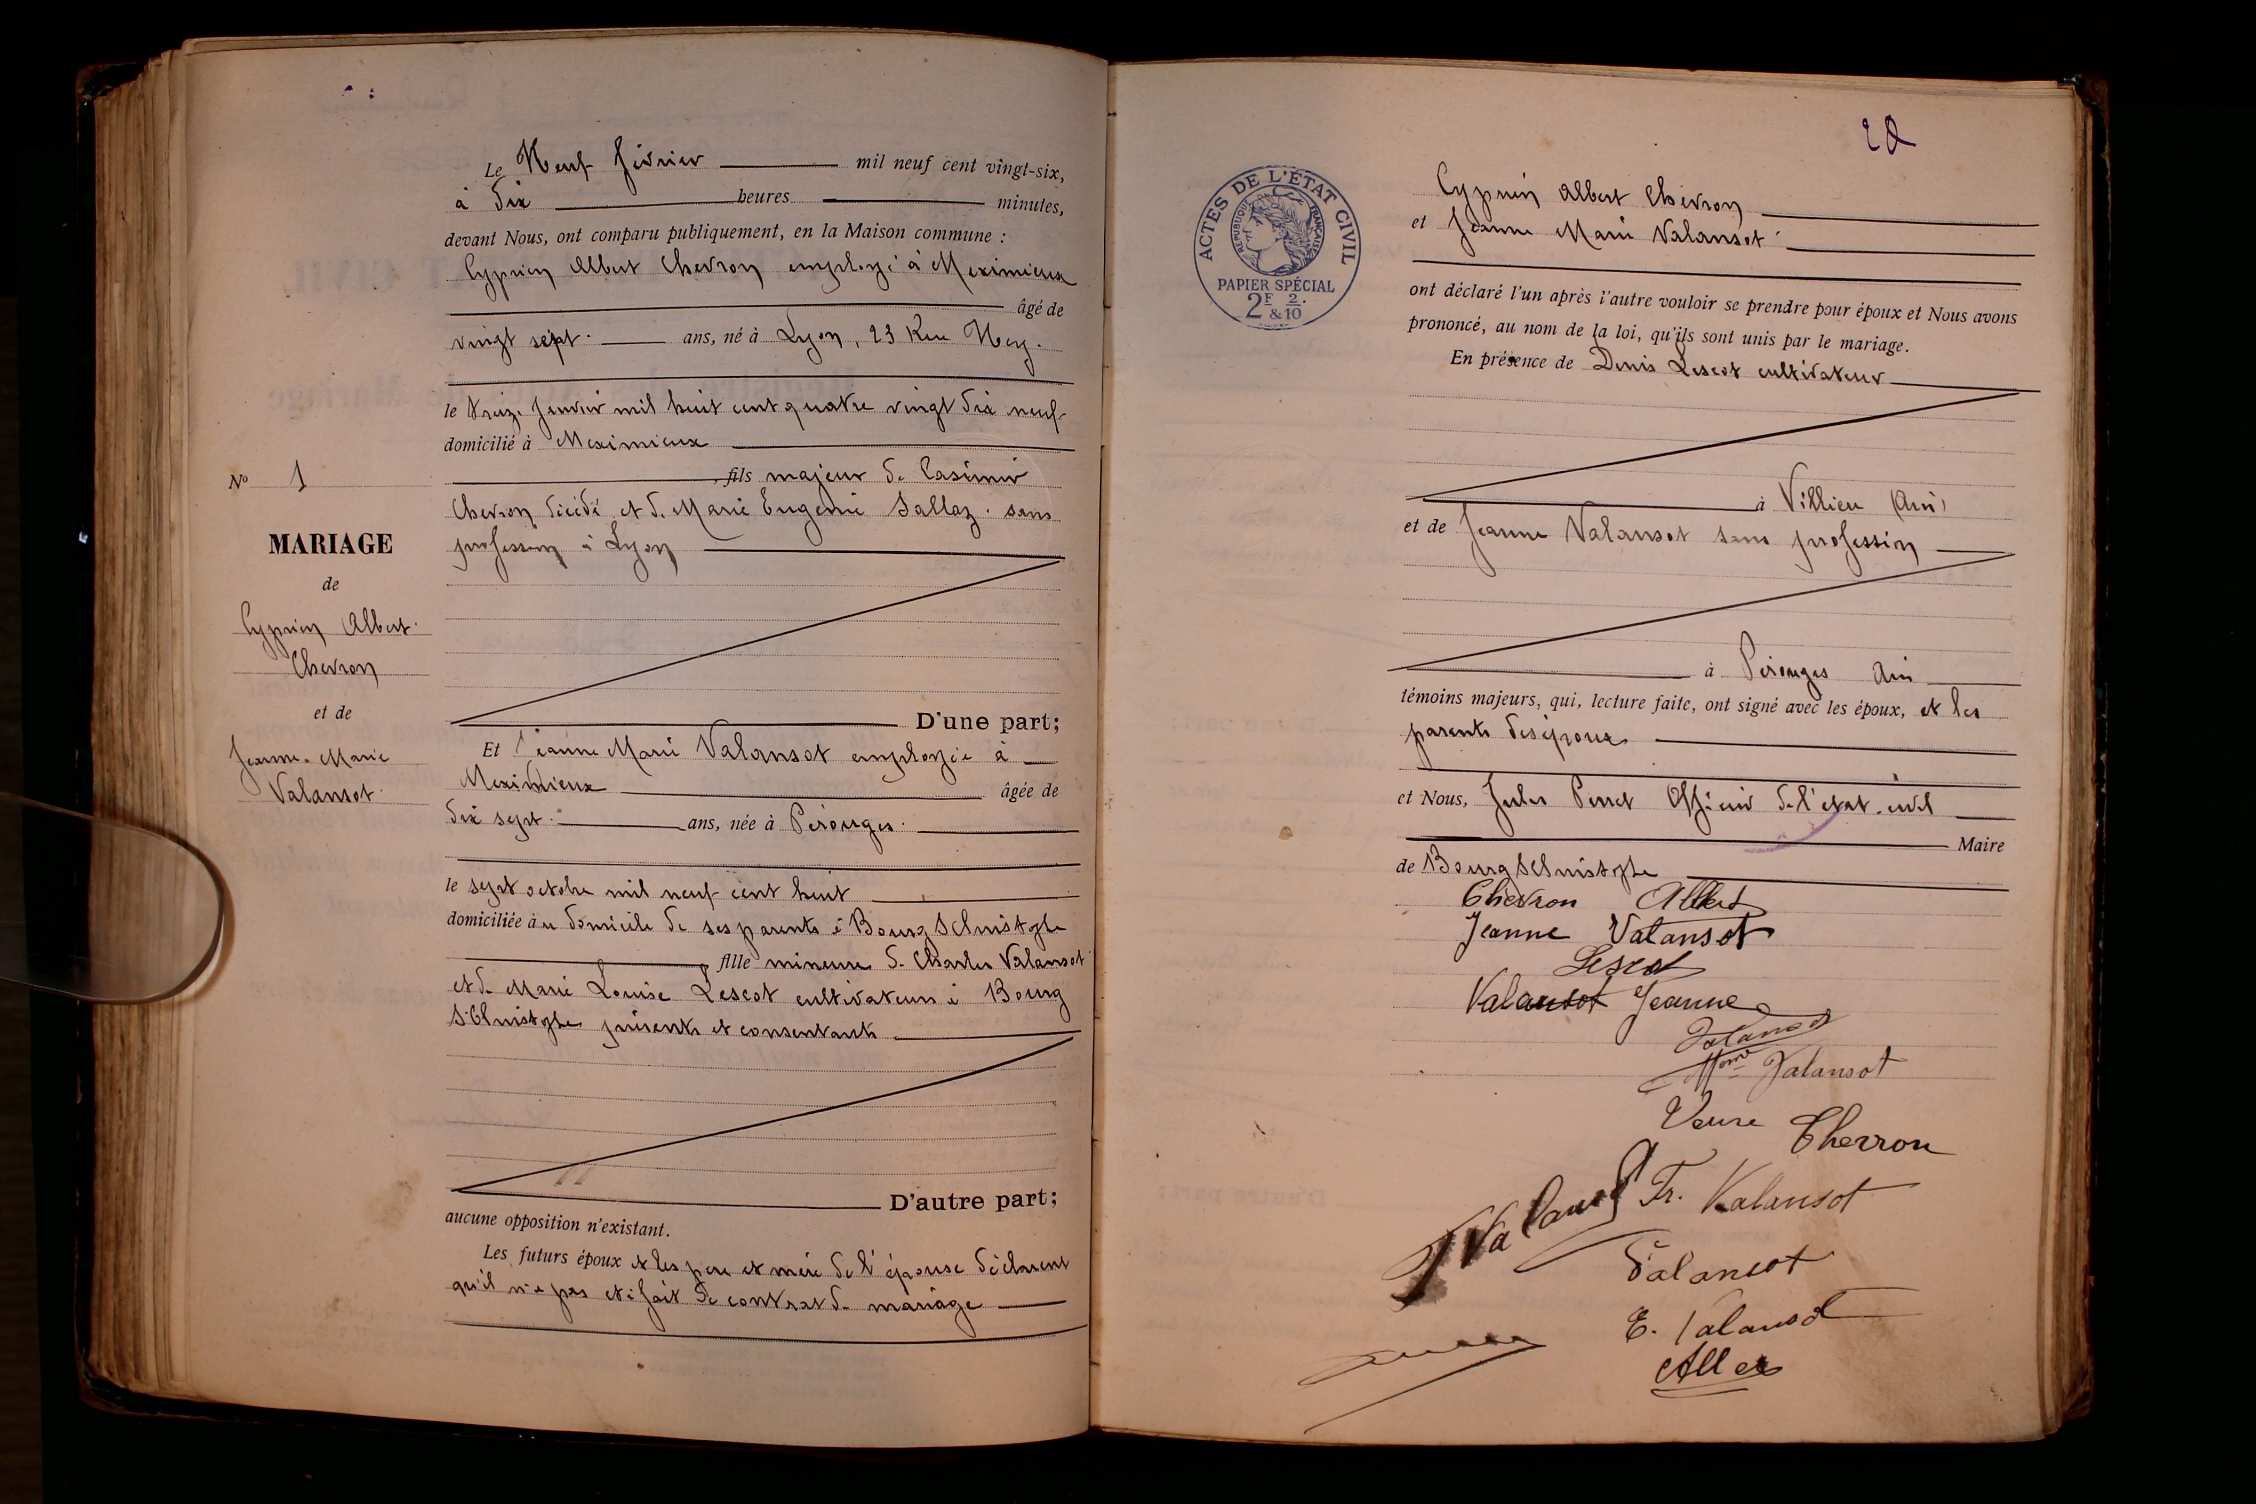 Le Neuf février mil neuf cent vingt-six,
à dix heures minutes,
devant Nous, ont comparu publiquement, en la Maison commune :
Cyprien Albert Chevron employé à Meximieux
âgé de
vingt sept ans, né à Lyon, 23 Rue Ney.
le treize janvier mil huit cent quatre vingt dix neuf
domicilié à Meximieux
fils majeur de Casimir
Chevron décédé et de Marie Eugénie Sallaz. sans
profession à Lyon
D'une part;
Et Jeanne Marie Valansot employée à
Meximieux âgée de
dix sept ans, née à Pérouges.
le sept octobre mil neuf cent huit
domiciliée à u domicile de ses parents à Bourg St Christophe
fille mineure de Charles Valansot
et de Marie Louise Lescot cultivateurs à Bourg
St Christophe présents et consentants
D'autre part;
aucune opposition n'existant.
Les futurs époux et les père et mère de l'épouse déclarent
qu'il n'a pas été fait de contrat de mariage
No 1
MARIAGE
de
Cyprien Albert
Chevron
et de
Jeanne-Marie
Valansot
ACTES DE L'ÉTAT CIVIL
RÉPUBLIQUE FRANÇAISE
PAPIER SPÉCIAL
2F & 2/10
Cyprien Albert Chevron
et Jeanne Marie Valansot
ont déclaré l'un après l'autre vouloir se prendre pour époux et Nous avons
prononcé, au nom de la loi, qu'ils sont unis par le mariage.
En présence de Denis Lescot cultivateur
à Villieu (Ain)
et de Jeanne Valansot sans profession
à Pérouges Ain
témoins majeurs, qui, lecture faite, ont signé avec les époux, et les
parents des époux
et Nous, Jules Perret Officier de l'état-civil
Maire
de Bourg St Christophe
Chevron Albert
Jeanne Valansot
Lescot
Valansot Jeanne
Valansot
Mme Valansot
Veuve Chevron
Valansot Fr. Valansot
Valansot
E. Valansot